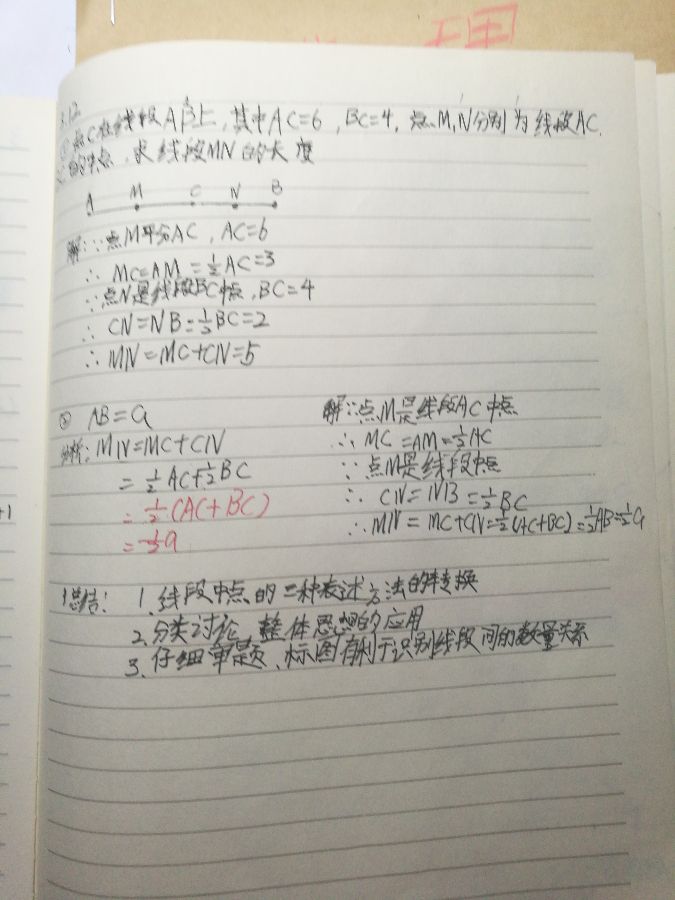 理
3.12
① 点C在线段AB上,其中AC=6,BC=4,点M,N分别为线段AC,
BC的中点,求线段MN的长度
A M C N B
解:∵点M平分AC,AC=6
∴ MC=AM=½AC=3
∵点N是线段BC中点,BC=4
∴ CN=NB=½BC=2
∴ MN=MC+CN=5
② AB=a
分析:MN=MC+CN
=½AC+½BC
=½(AC+BC)
=½a
解:∵点M是线段AC中点
∴ MC=AM=½AC
∵ 点M是线段中点
∴ CN=NB=½BC
∴MN=MC+CN=½(AC+BC)=½AB=½a
+1
总结: 1.线段中点的三种表述方法的转换
2.分类讨论,整体思想的应用
3.仔细审题、标图有利于识别线段间的数量关系